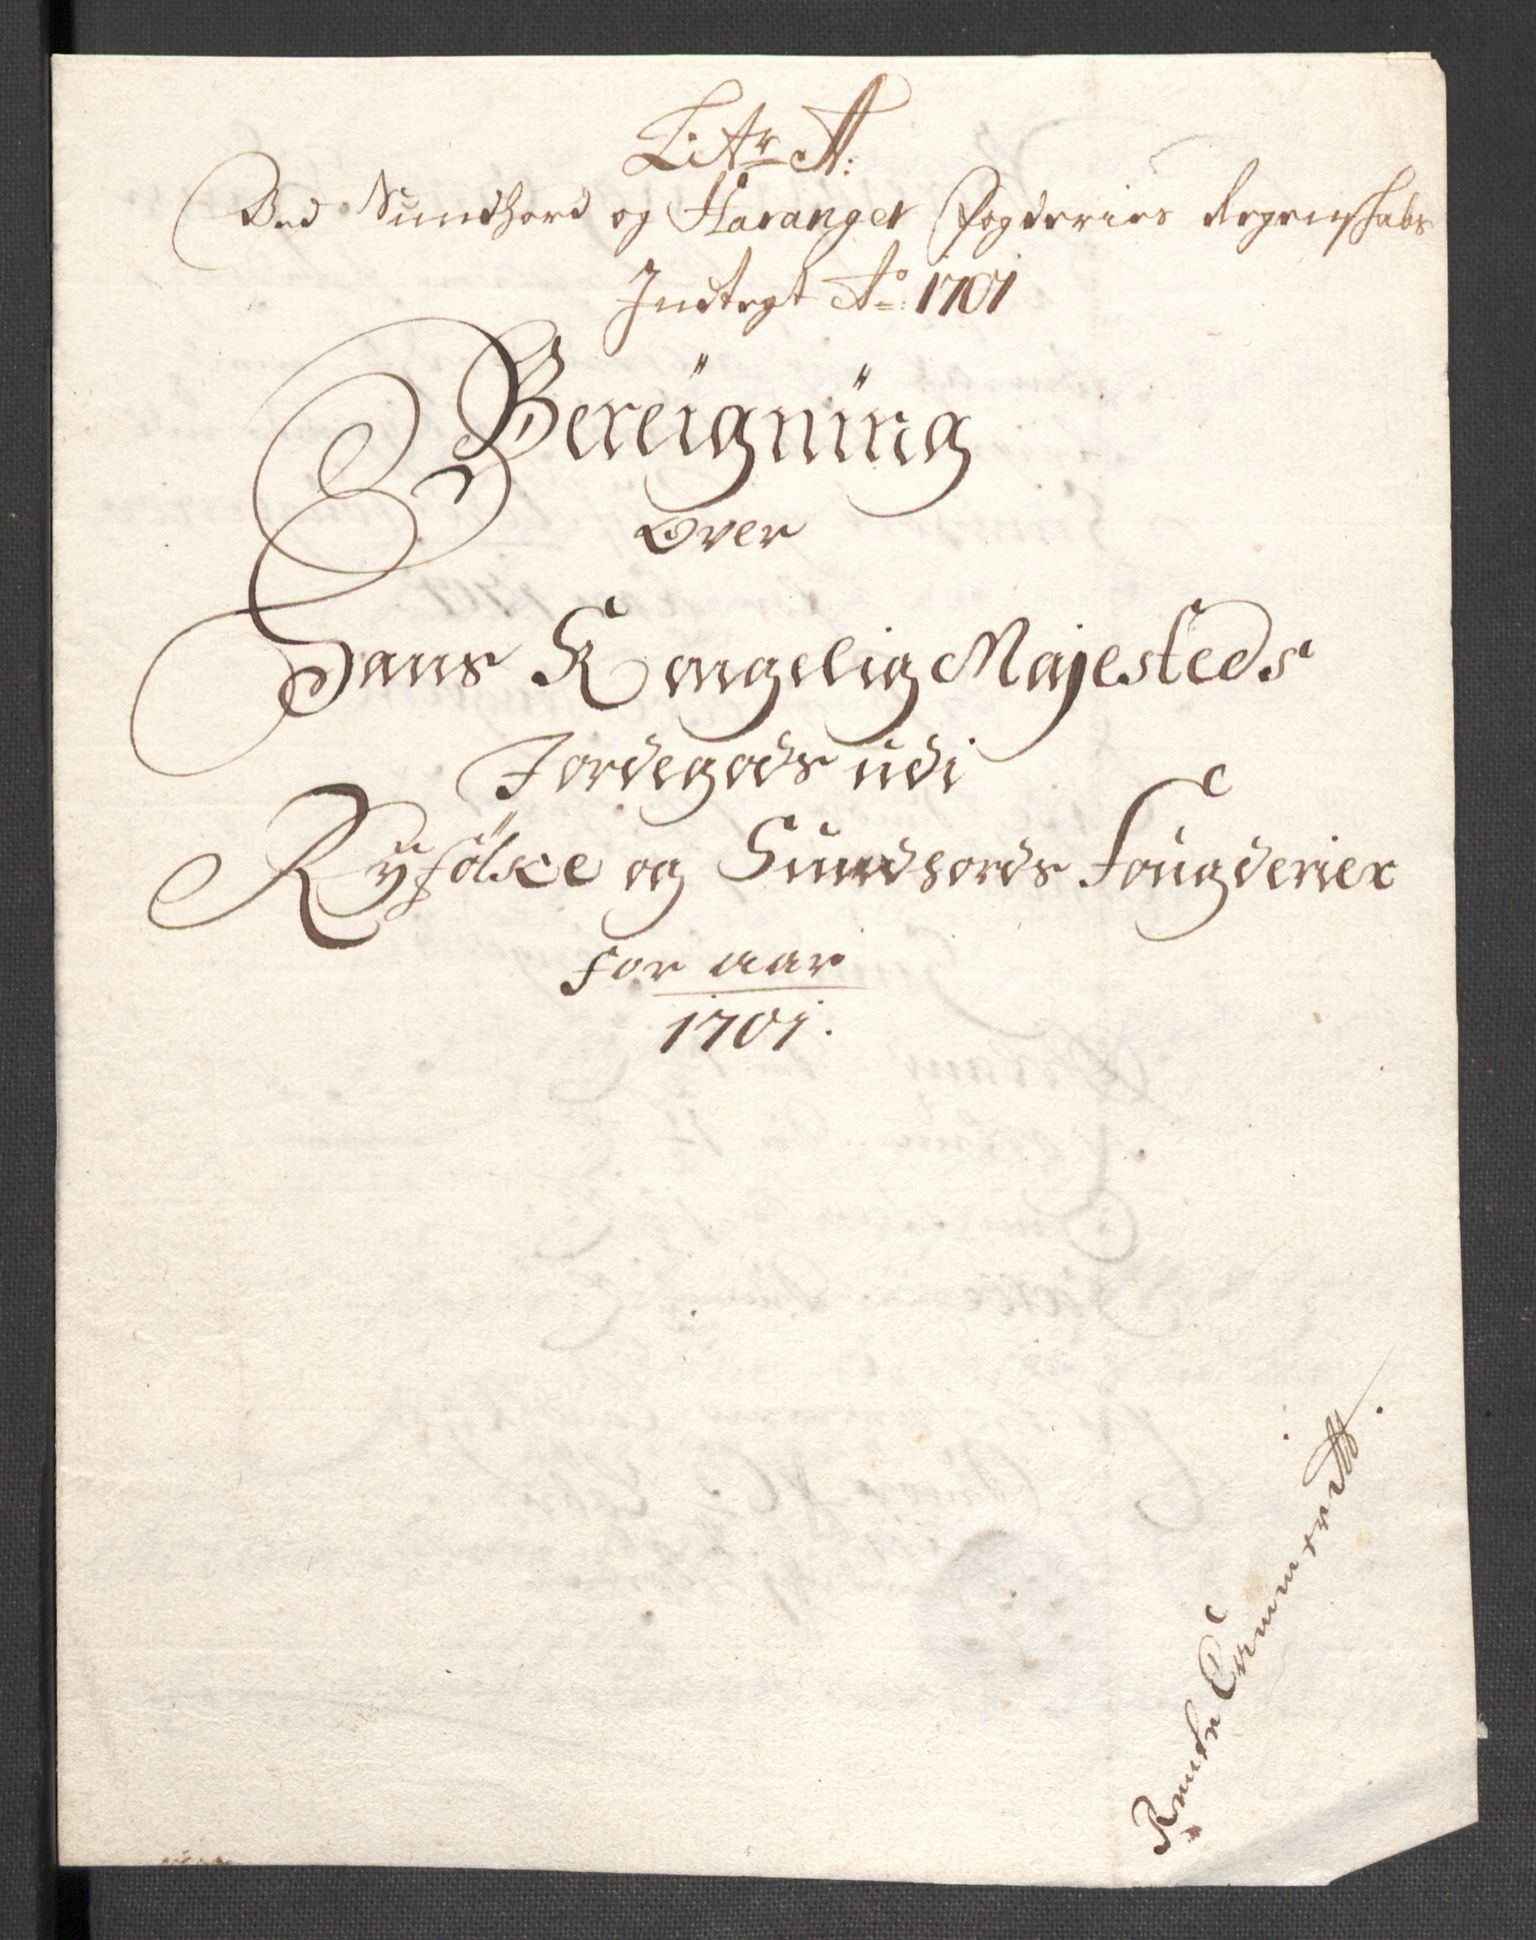 Litr A:
Ved Sundhord og Haranger Fogderies Regenskabs
Indtegt Ao: 1701
Bereigning
Over
Hans Kongelig Majesteds
Jordegods udi
Ryfølke og Sundhords Fougderier
for aar
1701.
Rente Cammeret.